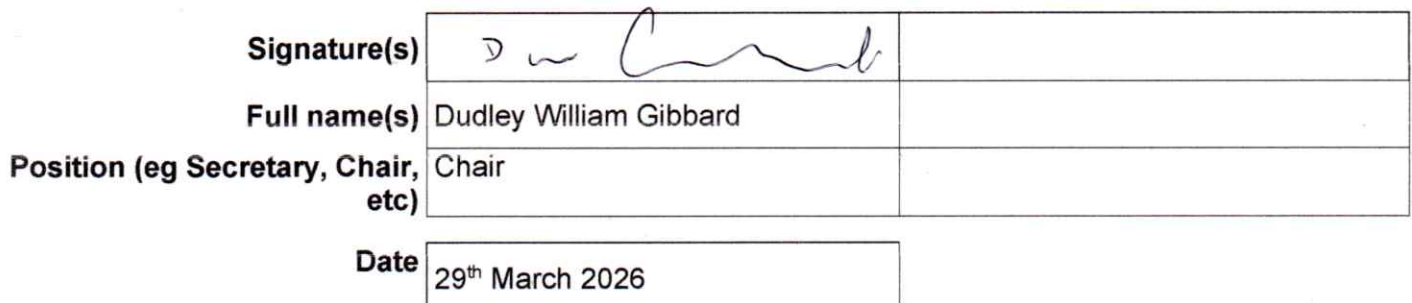 Signature(s)
Full name(s) Dudley William Gibbard
Position (eg Secretary, Chair, Chair
etc)
Date 29th March 2026